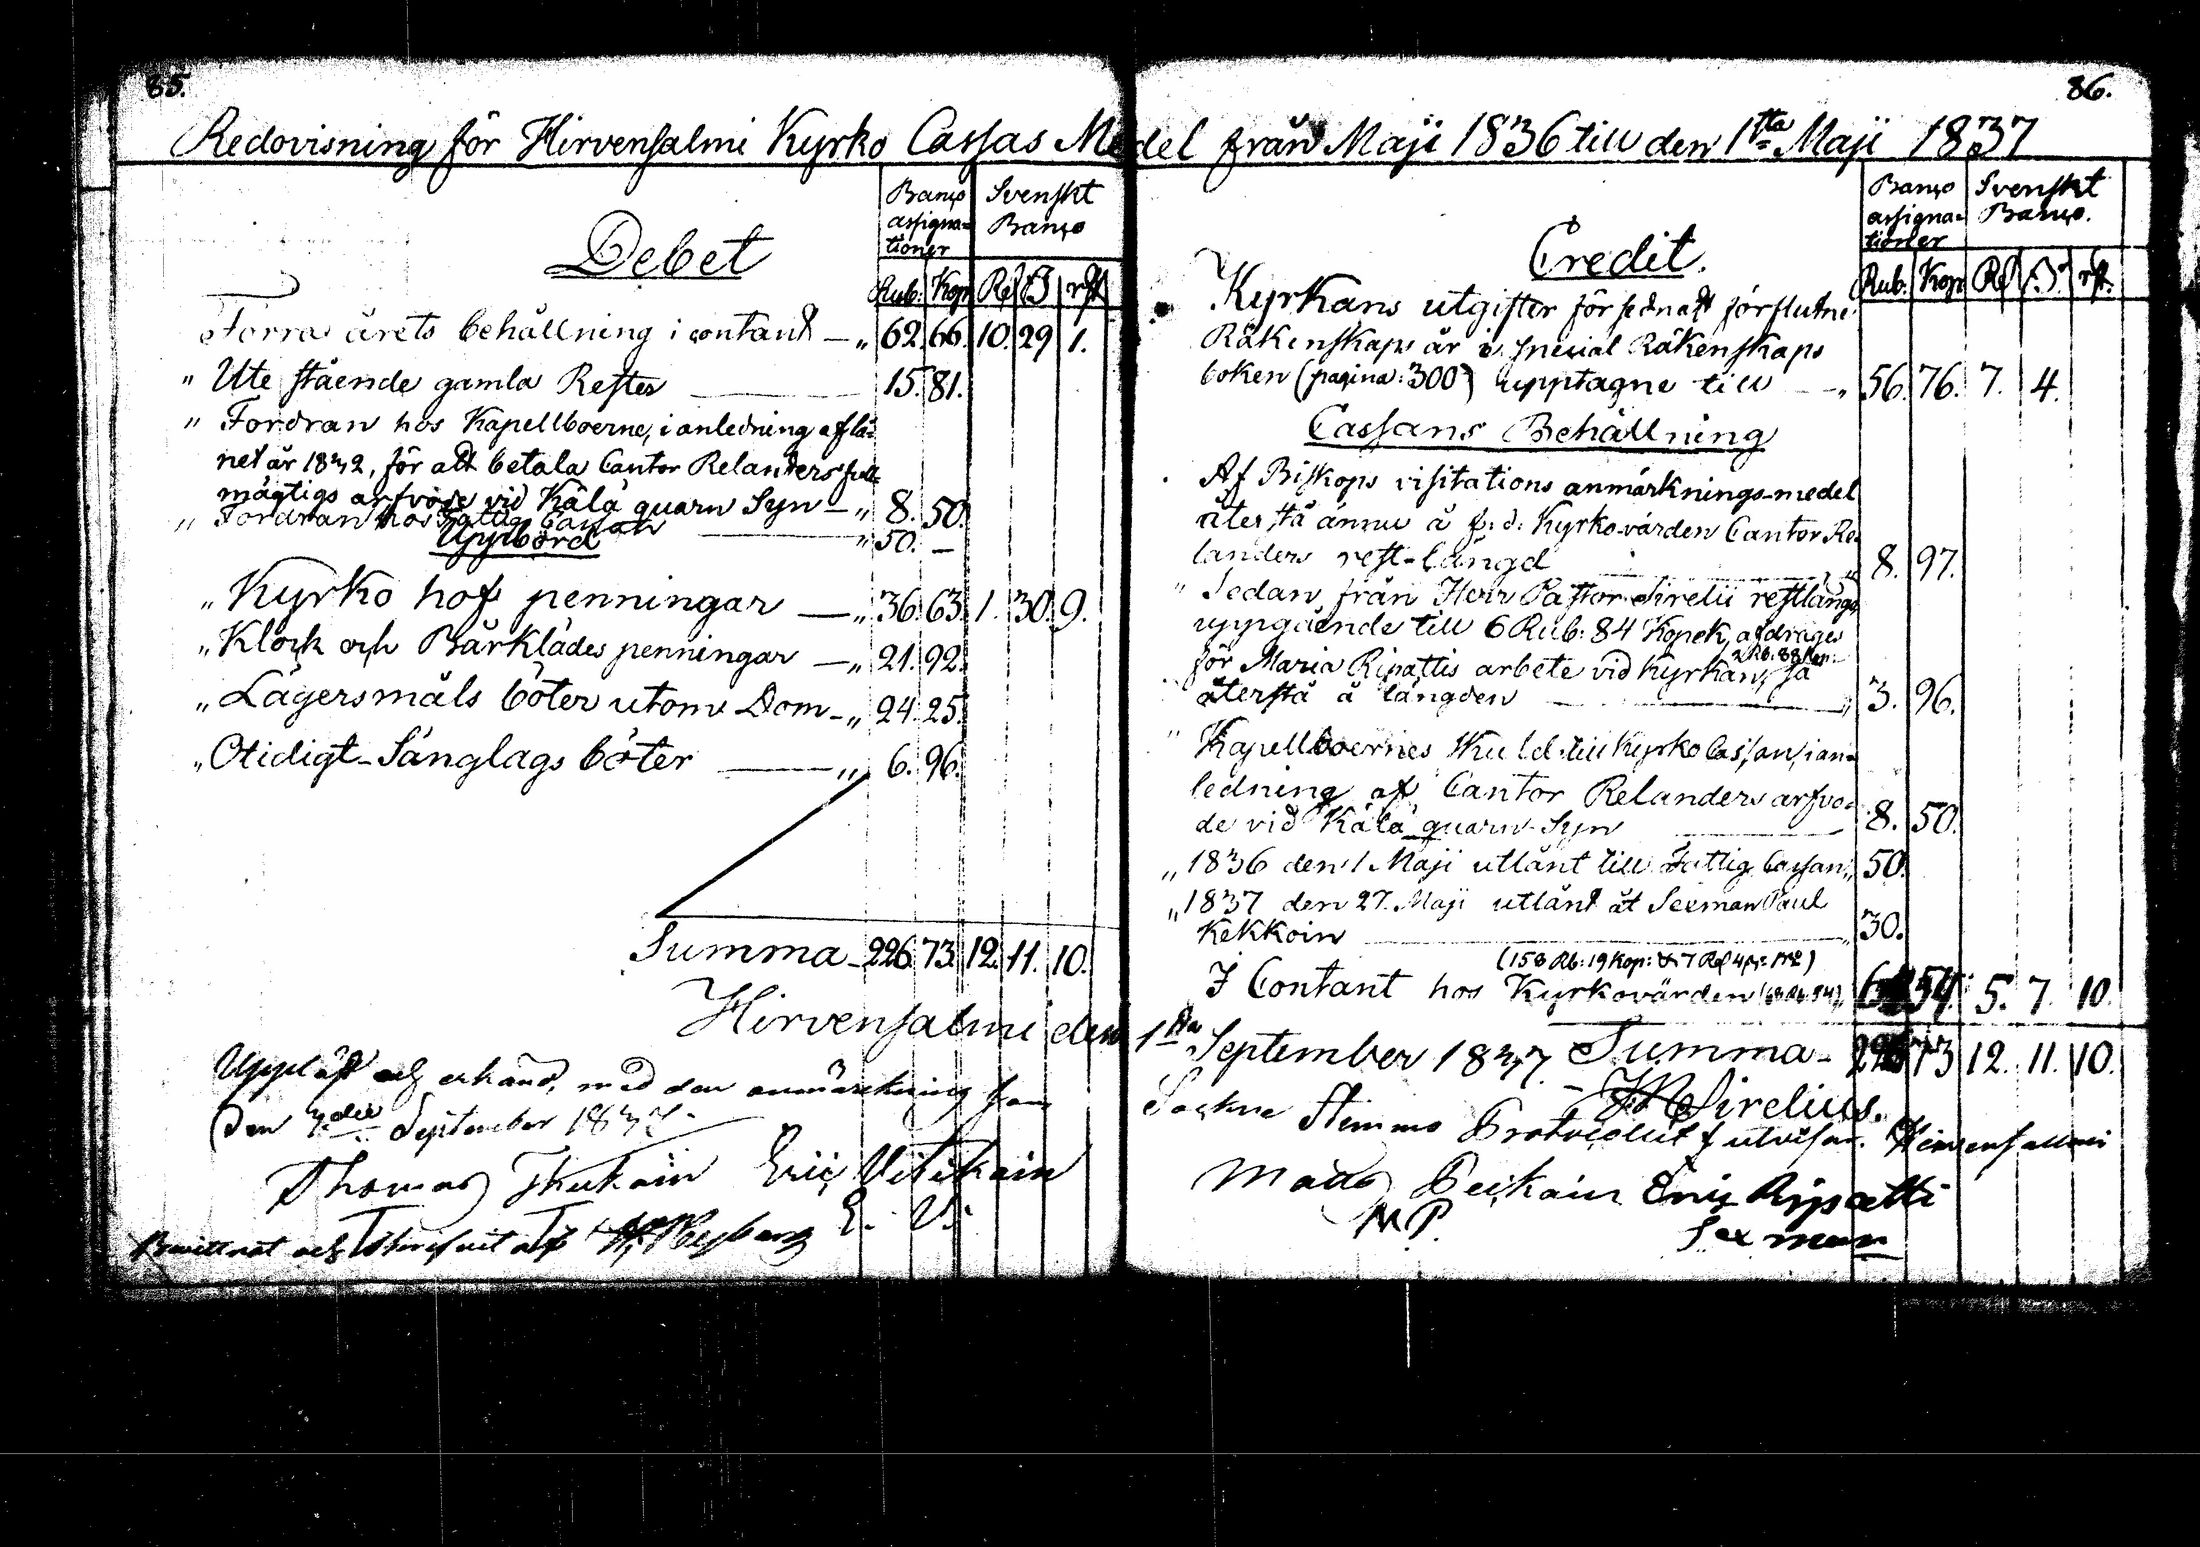 85.
Redovisning för Hirvensalmi Kyrko Cassas Medel från Maji 1836 till den 1sta Maji 1837
Banco assignationer Svenskt Banco
Debet
Rub: Kop Rd ß rst
Förra årets behållning i contant — „ 62. 66. 10. 29 1.
„ Ute stående gamla Rester 15. 81.
„ Fordran hos Kapellboerne, i anledning af lå-
net år 1832, för att betala Cantor Relanders full-
mägtigs arfvode vid Kälä quarn Syn — „ 8. 50.
„ Fordran hos Fattig Cassan „ 50. —
Uppbörd
„ Kyrko hofs penningar — „ 36. 63. 1. 30. 9.
„ Klock och Bårklädes penningar — „ 21. 92.
„ Lägersmåls böter utom Dom — „ 24. 25.
„ Otidigt Sänglags böter — „ 6. 96.
Summa — 226. 73. 12. 11. 10.
Hirvensalmi den
Uppläst och erkänd, med den anmärckning som
den 3die September 1837.
Thomas Eric Vitikain
E. V.
Bevittnat och
86.
Banco assignationer Svenskt Banco.
Credit.
Rub. Kop Rd ß. rst.
Kyrkans utgifter för sednast förflutne
Räkenskaps år i Special Räkenskaps
boken (pagina: 300) upptagne till — „ 56. 76. 7. 4.
Cassans Behållning
Af Biskops visitations anmärknings-medel
återstå ännu å f: d: Kyrkovärden Cantor Re-
landers rest-längd „ 8. 97.
„ Sedan från Herr Pastor Sirelii restlängd
uppgående till 6 Rub: 84 Kopek, afdrages
för Maria Ripattis arbete vid Kyrkan, 2 Rb: 88 Kop: så
återstå å längden „ 3. 96.
„ Kapellboernes skuld till Kyrko Cassan, i an-
ledning af Cantor Relanders arfvo-
de vid Kälä quarn Syn 8. 50.
„ 1836 den 1 Maji utlånt till Fattig Cassan „ 50.
„ 1837 den 27. Maji utlånt åt Sexman Paul
Kekkoin „ 30.
(158 Rb: 19 Kop:
I Contant hos Kyrkovärden 54. 5. 7. 10.
1sta September 1837. Summa — 73 12. 11. 10.
Sirelius.
Sockne Stemmo Protocollet utvisar. Hirvensalmi
Mats Peikain Eric Ripatti
M. P. Sexman